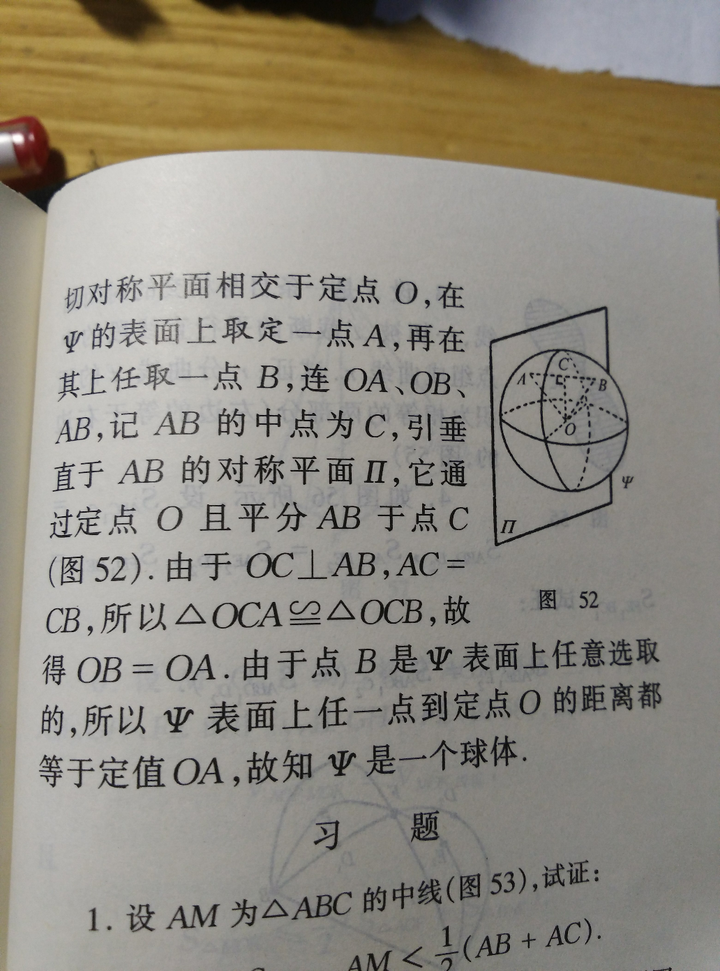 切对称平面相交于定点 O,在
Ψ的表面上取定一点 A,再在
其上任取一点 B,连 OA、OB、
AB,记 AB 的中点为 C,引垂
直于 AB 的对称平面Π,它通
过定点 O 且平分 AB 于点 C
(图 52).由于 OC⊥AB,AC=
CB,所以△OCA≌△OCB,故
得 OB=OA.由于点 B 是 Ψ 表面上任意选取
的,所以 Ψ 表面上任一点到定点 O 的距离都
等于定值 OA,故知 Ψ 是一个球体.
A
C
B
O
Ψ
Π
图 52
习 题
1. 设 AM 为△ABC 的中线(图 53),试证:
AM < 1/2 (AB + AC).